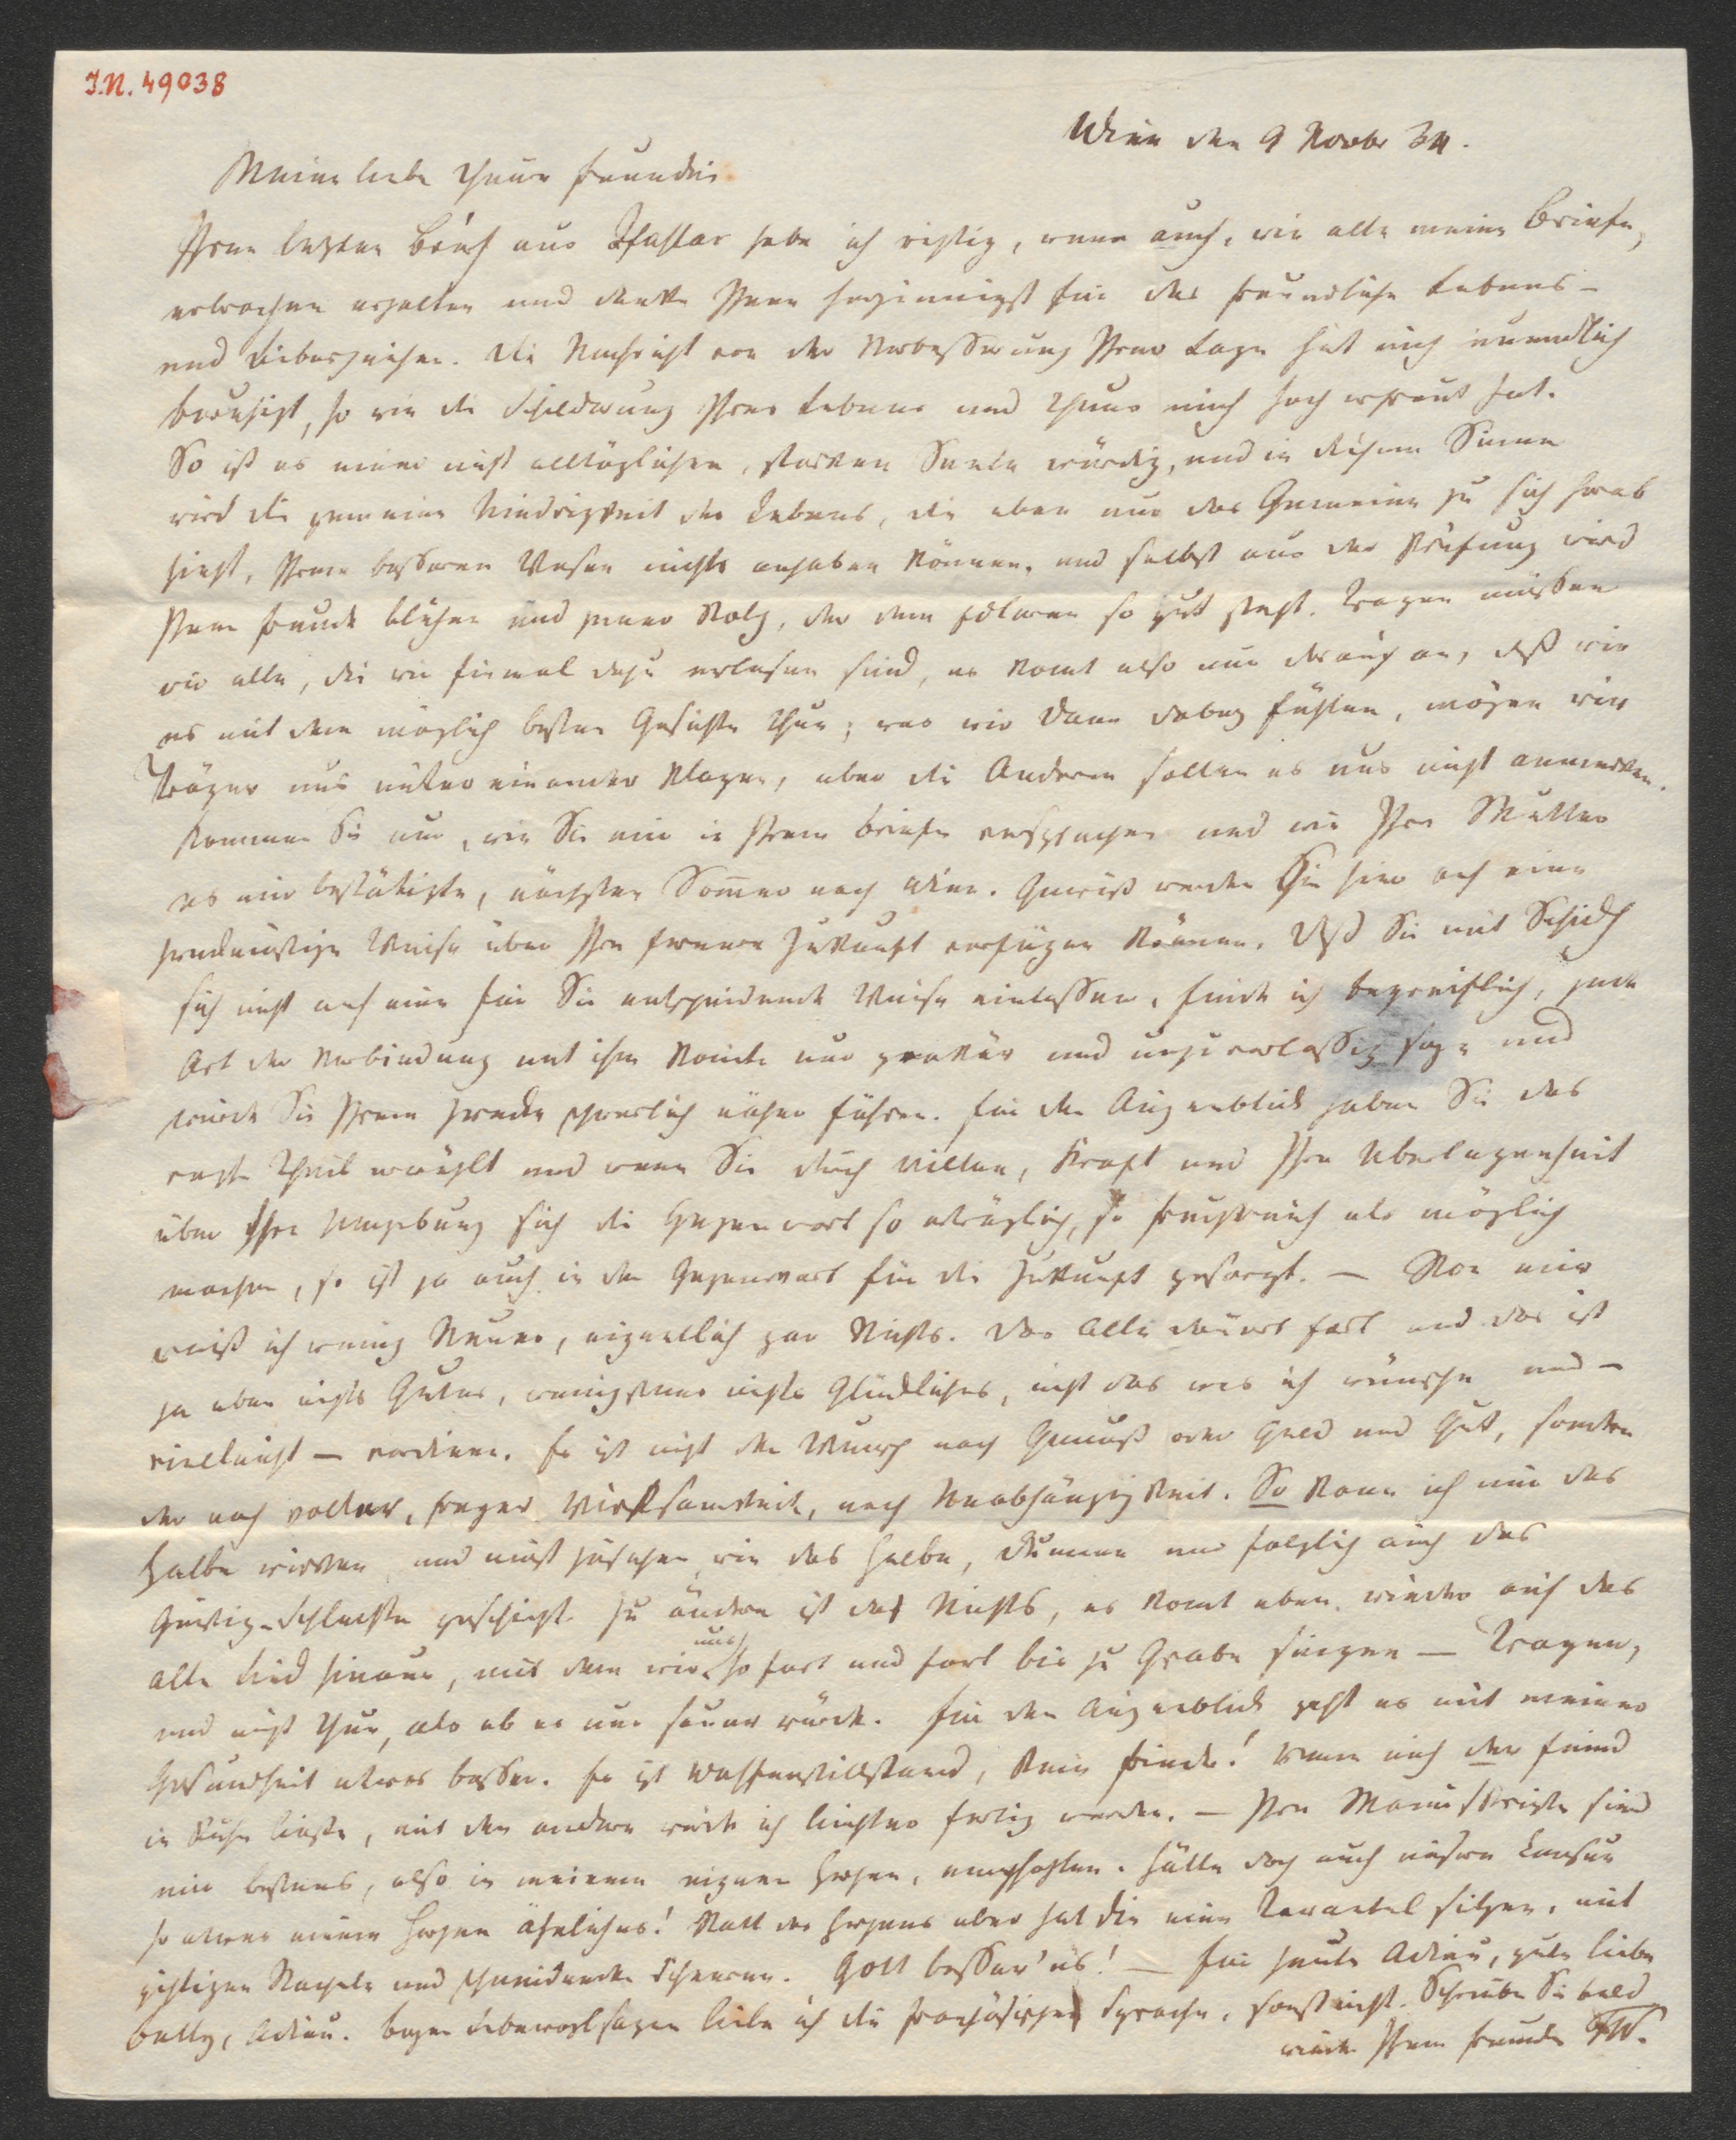 J.N. 49038
Wien den 9 Novbr 34.
Meine liebe theure Freundin
Ihren letzten Brief aus Ischl habe ich richtig, wenn auch, wie alle meine Briefe,
erbrochen erhalten und danke Ihnen herzinnigst für das freundliche Lebens-
und Liebeszeichen. Die Nachricht von der Verbesserung Ihrer Lage hat mich unendlich
beruhigt, so wie die Schilderung Ihres Lebens und Thuns mich hoch erfreut hat.
So ist es einer nicht alltäglichen, starken Seele würdig, und in diesem Sinne
wird die gemeine Niedrigkeit des Lebens, die eben nur das Gemeine zu sich herab
zieht, Ihrem besseren Wesen nichts anhaben können, und selbst aus der Prüfung wird
Ihnen Freude blühen und jener Stolz, der dem Edleren so gut steht. Tragen müssen
wir alle, die wir einmal dazu erlesen sind, es komt also nur darauf an, daß wir
es mit dem möglich besten Gesichte thun; was wir dann dabey fühlen, mögen wir
Träger uns unter einander klagen, aber die Anderen sollen es uns nicht anmerken.
Kommen Sie nur, wie Sie mir in Ihrem Briefe versprachen und wie Ihre Mutter
es mir bestätigte, nächsten Sommer nach Wien. Gewiß werden Sie hier auf eine
zweckmäßige Weise über Ihre fernere Zukunft verfügen können. Daß Sie mit Schickh
sich nicht auf eine für Sie entscheidende Weise einlassen, finde ich begreiflich, jede
Art der Verbindung mit ihm könnte nur prekär und unzuverlässig seyn und
würde Sie Ihrem Zwecke schwerlich näher führen. Für den Augenblick haben Sie das
rechte Theil erwählt und wenn Sie durch Willen, Kraft und Ihre Überlegenheit
über Ihre Umgebung sich die Gegenwart so erträglich, so freundlich als möglich
machen, so ist ja auch in der Gegenwart für die Zukunft gesorgt. — Von mir
weiß ich wenig Neues, eigentlich gar Nichts. Das Alte dauert fort und das ist
ja eben nichts Gutes, wenigstens nichts Glückliches, nicht das was ich wünsche und —
vielleicht — verdiene. Es ist nicht der Wunsch nach Genuß oder Geld und Gut, sondern
der nach voller, freyer Wirksamkeit, nach Unabhängigkeit. So kann ich nur das
Halbe wirken und muß zusehen, wie das Halbe, Dumme und folglich auch das
Geistig-Schlechte geschieht. Zu ändern ist da Nichts, es komt eben wieder auf das
alte Lied hinaus, mit dem wir uns so fort und fort bis zu Grabe singen — Tragen,
und nicht thun, als ob es uns sauer würde. Für den Augenblick geht es mit meiner
Gesundheit etwas besser. Es ist Waffenstillstand, kein Friede! Wenn mich der Feind
in Ruhe ließe, mit den andern würde ich leichter fertig werden. — Ihre Manuskripte sind
mir bestens, also in meinem eignen Herzen, empfohlen. Hätte doch auch unsere Censur
so etwas einem Herzen ähnliches! Statt des Herzens aber hat die eine Tarantel sitzen, mit
giftigen Stacheln und schneidenden Scheeren. Gott besser' es! — Für heute Adieu, gute liebe
Betty, Adieu. Beym Lebewohlsagen liebe ich die französische Sprache, sonst nicht. Schreiben Sie bald
wieder Ihrem Freunde FW.